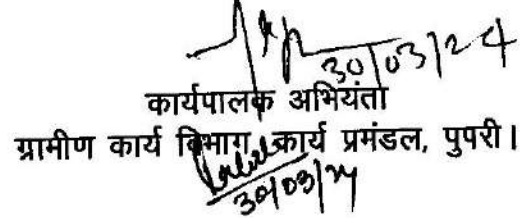 30/03/24
कार्यपालक अभियंता
ग्रामीण कार्य विभाग, कार्य प्रमंडल, पुपरी।
30/03/24